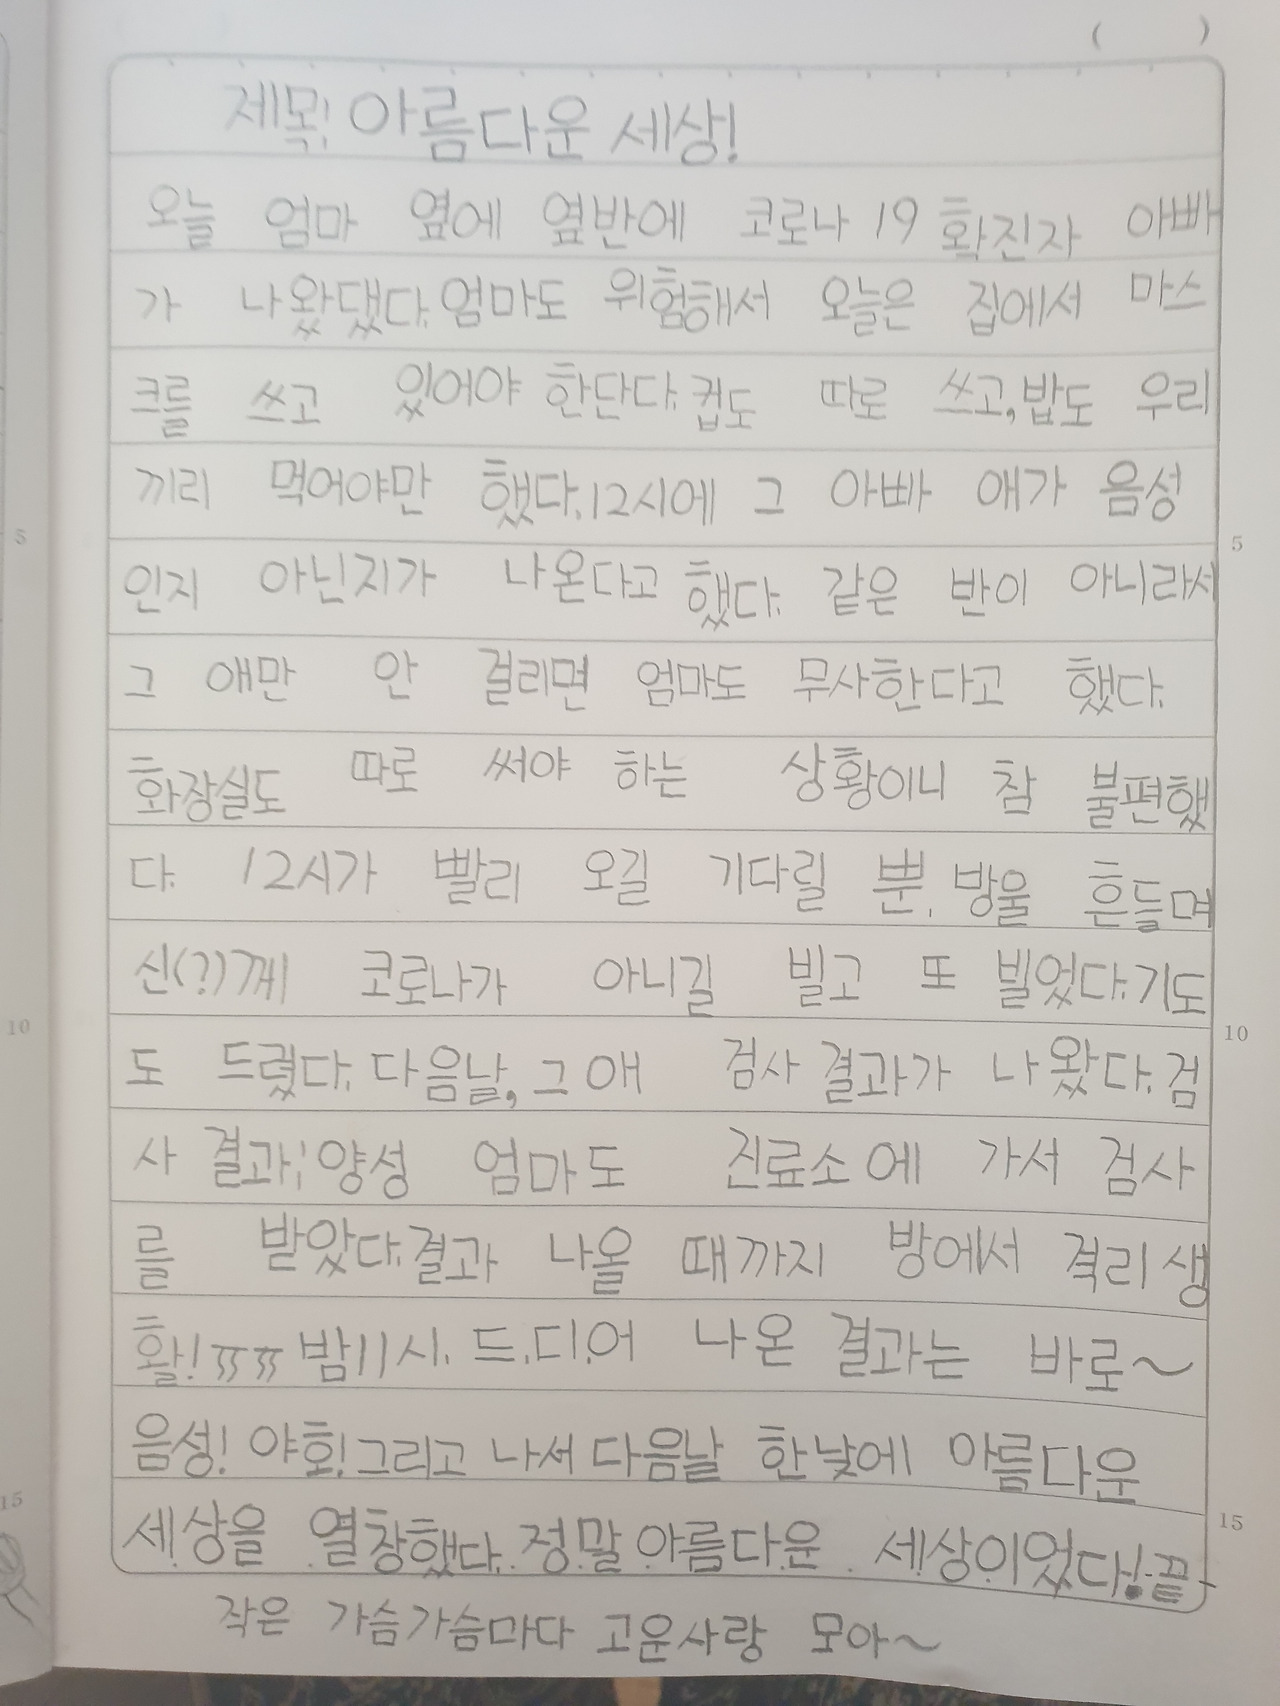 ( )
제목! 아름다운 세상!
오늘 엄마 옆에 옆반에 코로나 19 확진자 아빠
가 나왔댔다. 엄마도 위험해서 오늘은 집에서 마스
크를 쓰고 있어야 한단다. 컵도 따로 쓰고, 밥도 우리
끼리 먹어야만 했다. 12시에 그 아빠 애가 음성
인지 아닌지가 나온다고 했다. 같은 반이 아니라서
그 애만 안 걸리면 엄마도 무사한다고 했다.
화장실도 따로 써야 하는 상황이니 참 불편했
다. 12시가 빨리 오길 기다릴 뿐. 방울 흔들며
신(?)께 코로나가 아니길 빌고 또 빌었다. 기도
도 드렸다. 다음날, 그 애 검사 결과가 나왔다. 검
사 결과; 양성 엄마도 진료소에 가서 검사
를 받았다. 결과 나올 때까지 방에서 격리 생
활! ㅠㅠ 밤 11시. 드.디.어 나온 결과는 바로~
음성! 야회! 그리고 나서 다음날 한낮에 아름다운
세상을 열창했다. 정말 아름다운 세상이었다! -끝-
작은 가슴가슴마다 고운사랑 모아~
5
10
15
5
10
15